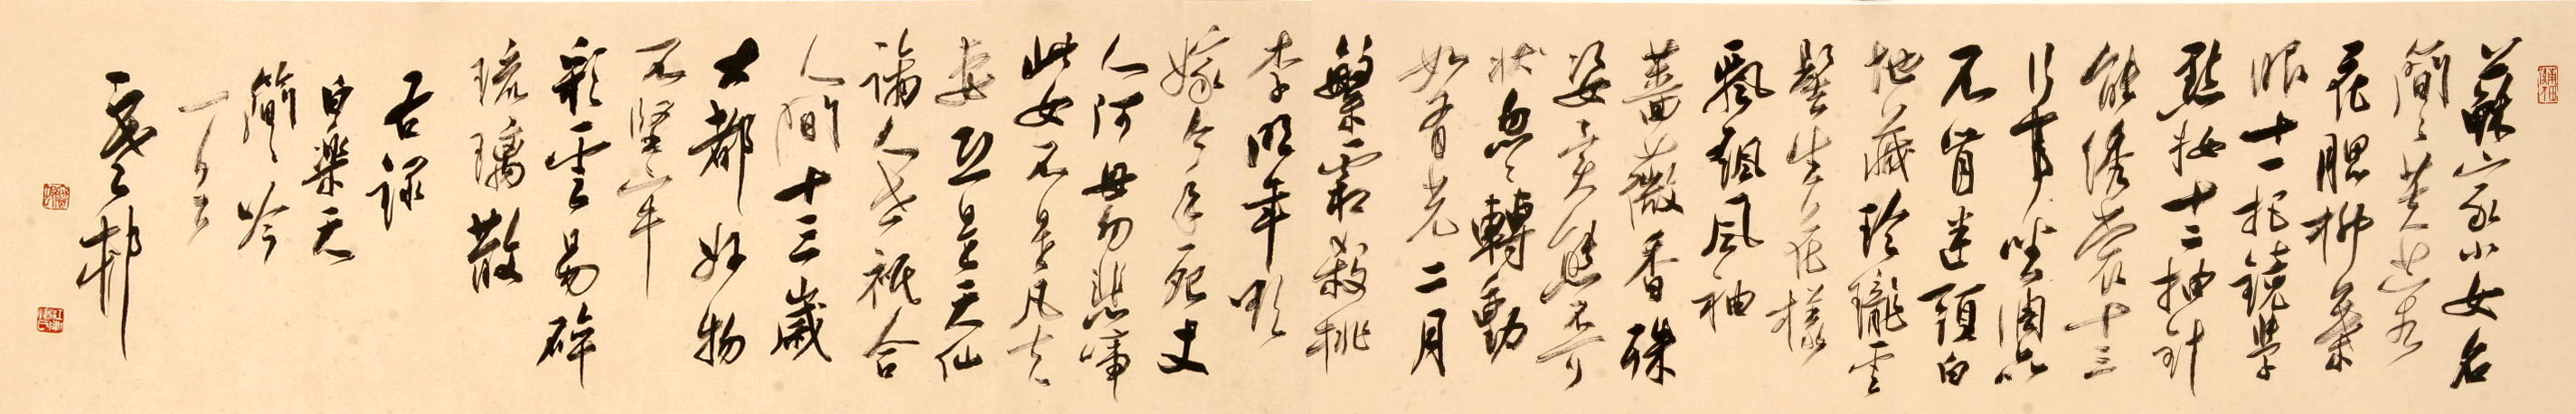 蘇家小女名
簡々芙蓉
花腮柳葉
眼十一把鏡學
點妝十二抽針
能繡裳十三
行事坐調品
不肯迷頭白
地藏玲瓏雲
髻生花樣
飄飖風袖
薔薇香殊
姿異態不可
狀忽々轉動
如有光二月
繁霜殺桃
李明年欲
嫁今年死丈
人阿母勿悲啼
此女不是凡夫
妻恐是天仙
謫人世祇合
人間十三歲
大都好物
不堅牢
彩雲易碎
琉璃散
右録
白樂天
簡々吟
丁亥